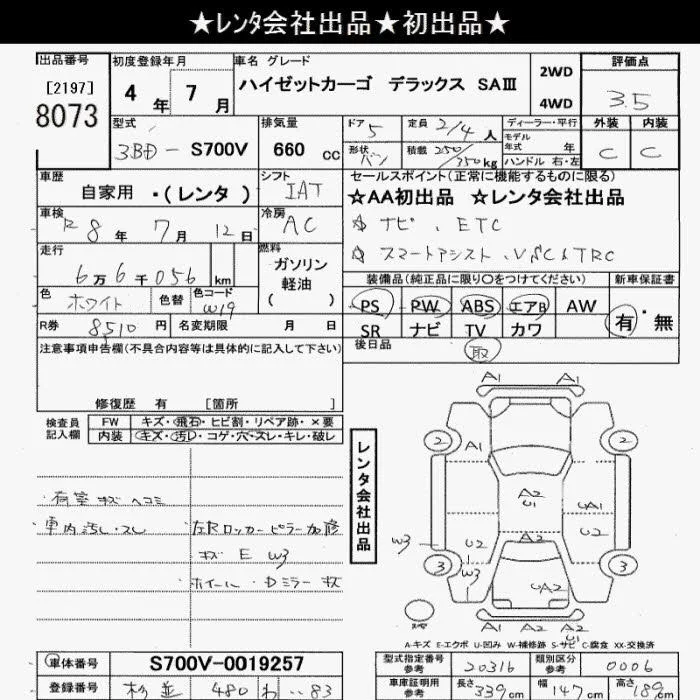 ★レンタ会社出品★初出品★
出品番号
[2197]
8073
初度登録年月
4年 7月
車名 グレード
ハイゼットカーゴ デラックス SAⅢ
2WD
4WD
評価点
3.5
外装 内装
C C
型式
3BD - S700V
排気量
660 cc
ドア 5
形状 バン
定員 2/4人
積載 250/350kg
ディーラー・平行
モデル年式 年
ハンドル 右・左
車歴
自家用 ・(レンタ)
シフト
IAT
セールスポイント(正常に機能するものに限る)
☆AA初出品 ☆レンタ会社出品
☆ ナビ、ETC
☆ スマートアシスト、VSC&TRC
車検
R8年 7月 12日
冷房
AC
走行
6万6千056 km
燃料
ガソリン
軽油
( )
色
ホワイト
色替
色コード
W19
R券 8510円
名変期限 月 日
装備品(純正品に限り〇をつけてください)
新車保証書
PS PW ABS エアB AW
SR ナビ TV カワ
有・無
後日品
取
注意事項申告欄(不具合内容等は具体的に記入して下さい)
修復歴 有 [箇所 ]
検査員記入欄
FW キズ・飛石・ヒビ割・リペア跡・×要
内装 キズ・汚D・コゲ・穴・スレ・キレ・破レ
荷室キズ ヘコミ
車内汚し・スレ
左Rロッカーピラー加修
キズ E W3
ホイール・Dミラーキズ
レンタ会社出品
A1 A1
2 A1 2
A2
U1
UA1
W3 U2 A2 U2
3 W3 UA2 3
スペア
A2 A2 A2
U1
A-キズ E-エクボ U-凹み W-補修跡 S-サビ C-腐食 XX-交換済
車体番号
S700V-0019257
登録番号
松並 480 わ ・・83
型式指定番号
参考
20316
類別区分
参考
0006
車庫証明用
参考
長さ 339cm
幅 147cm
高さ 189cm